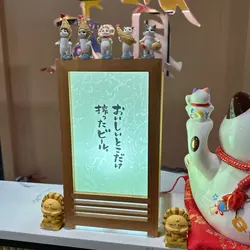 おいしいとこだけ
搾ったビール。